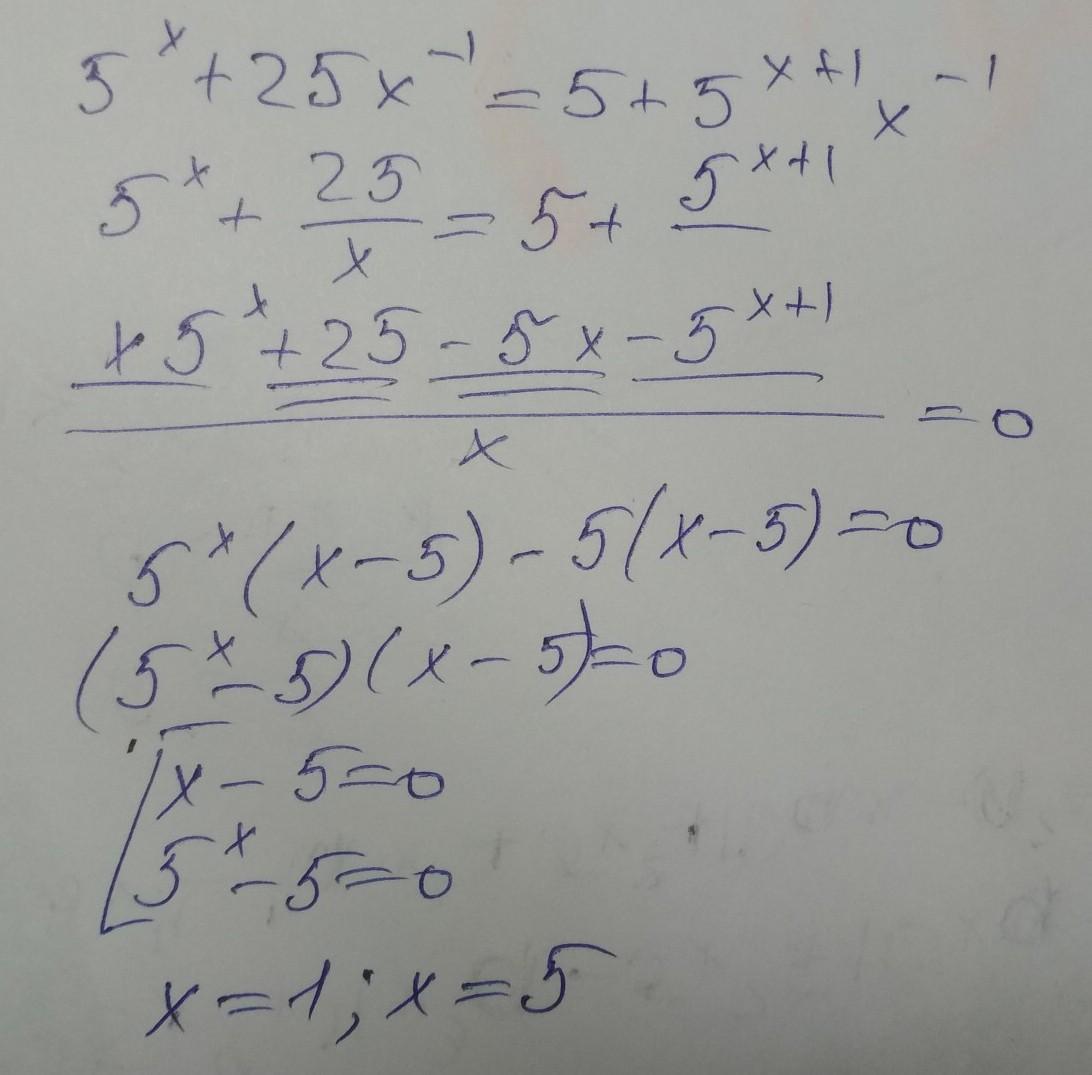 5^x + 25x^-1 = 5 + 5^x+1 x^-1
5^x + 25/x = 5 + 5^x+1/
(x5^x + 25 - 5x - 5^x+1)/x = 0
5^x (x - 5) - 5(x - 5) = 0
(5^x - 5)(x - 5) = 0
[x - 5 = 0
5^x - 5 = 0
x = 1; x = 5